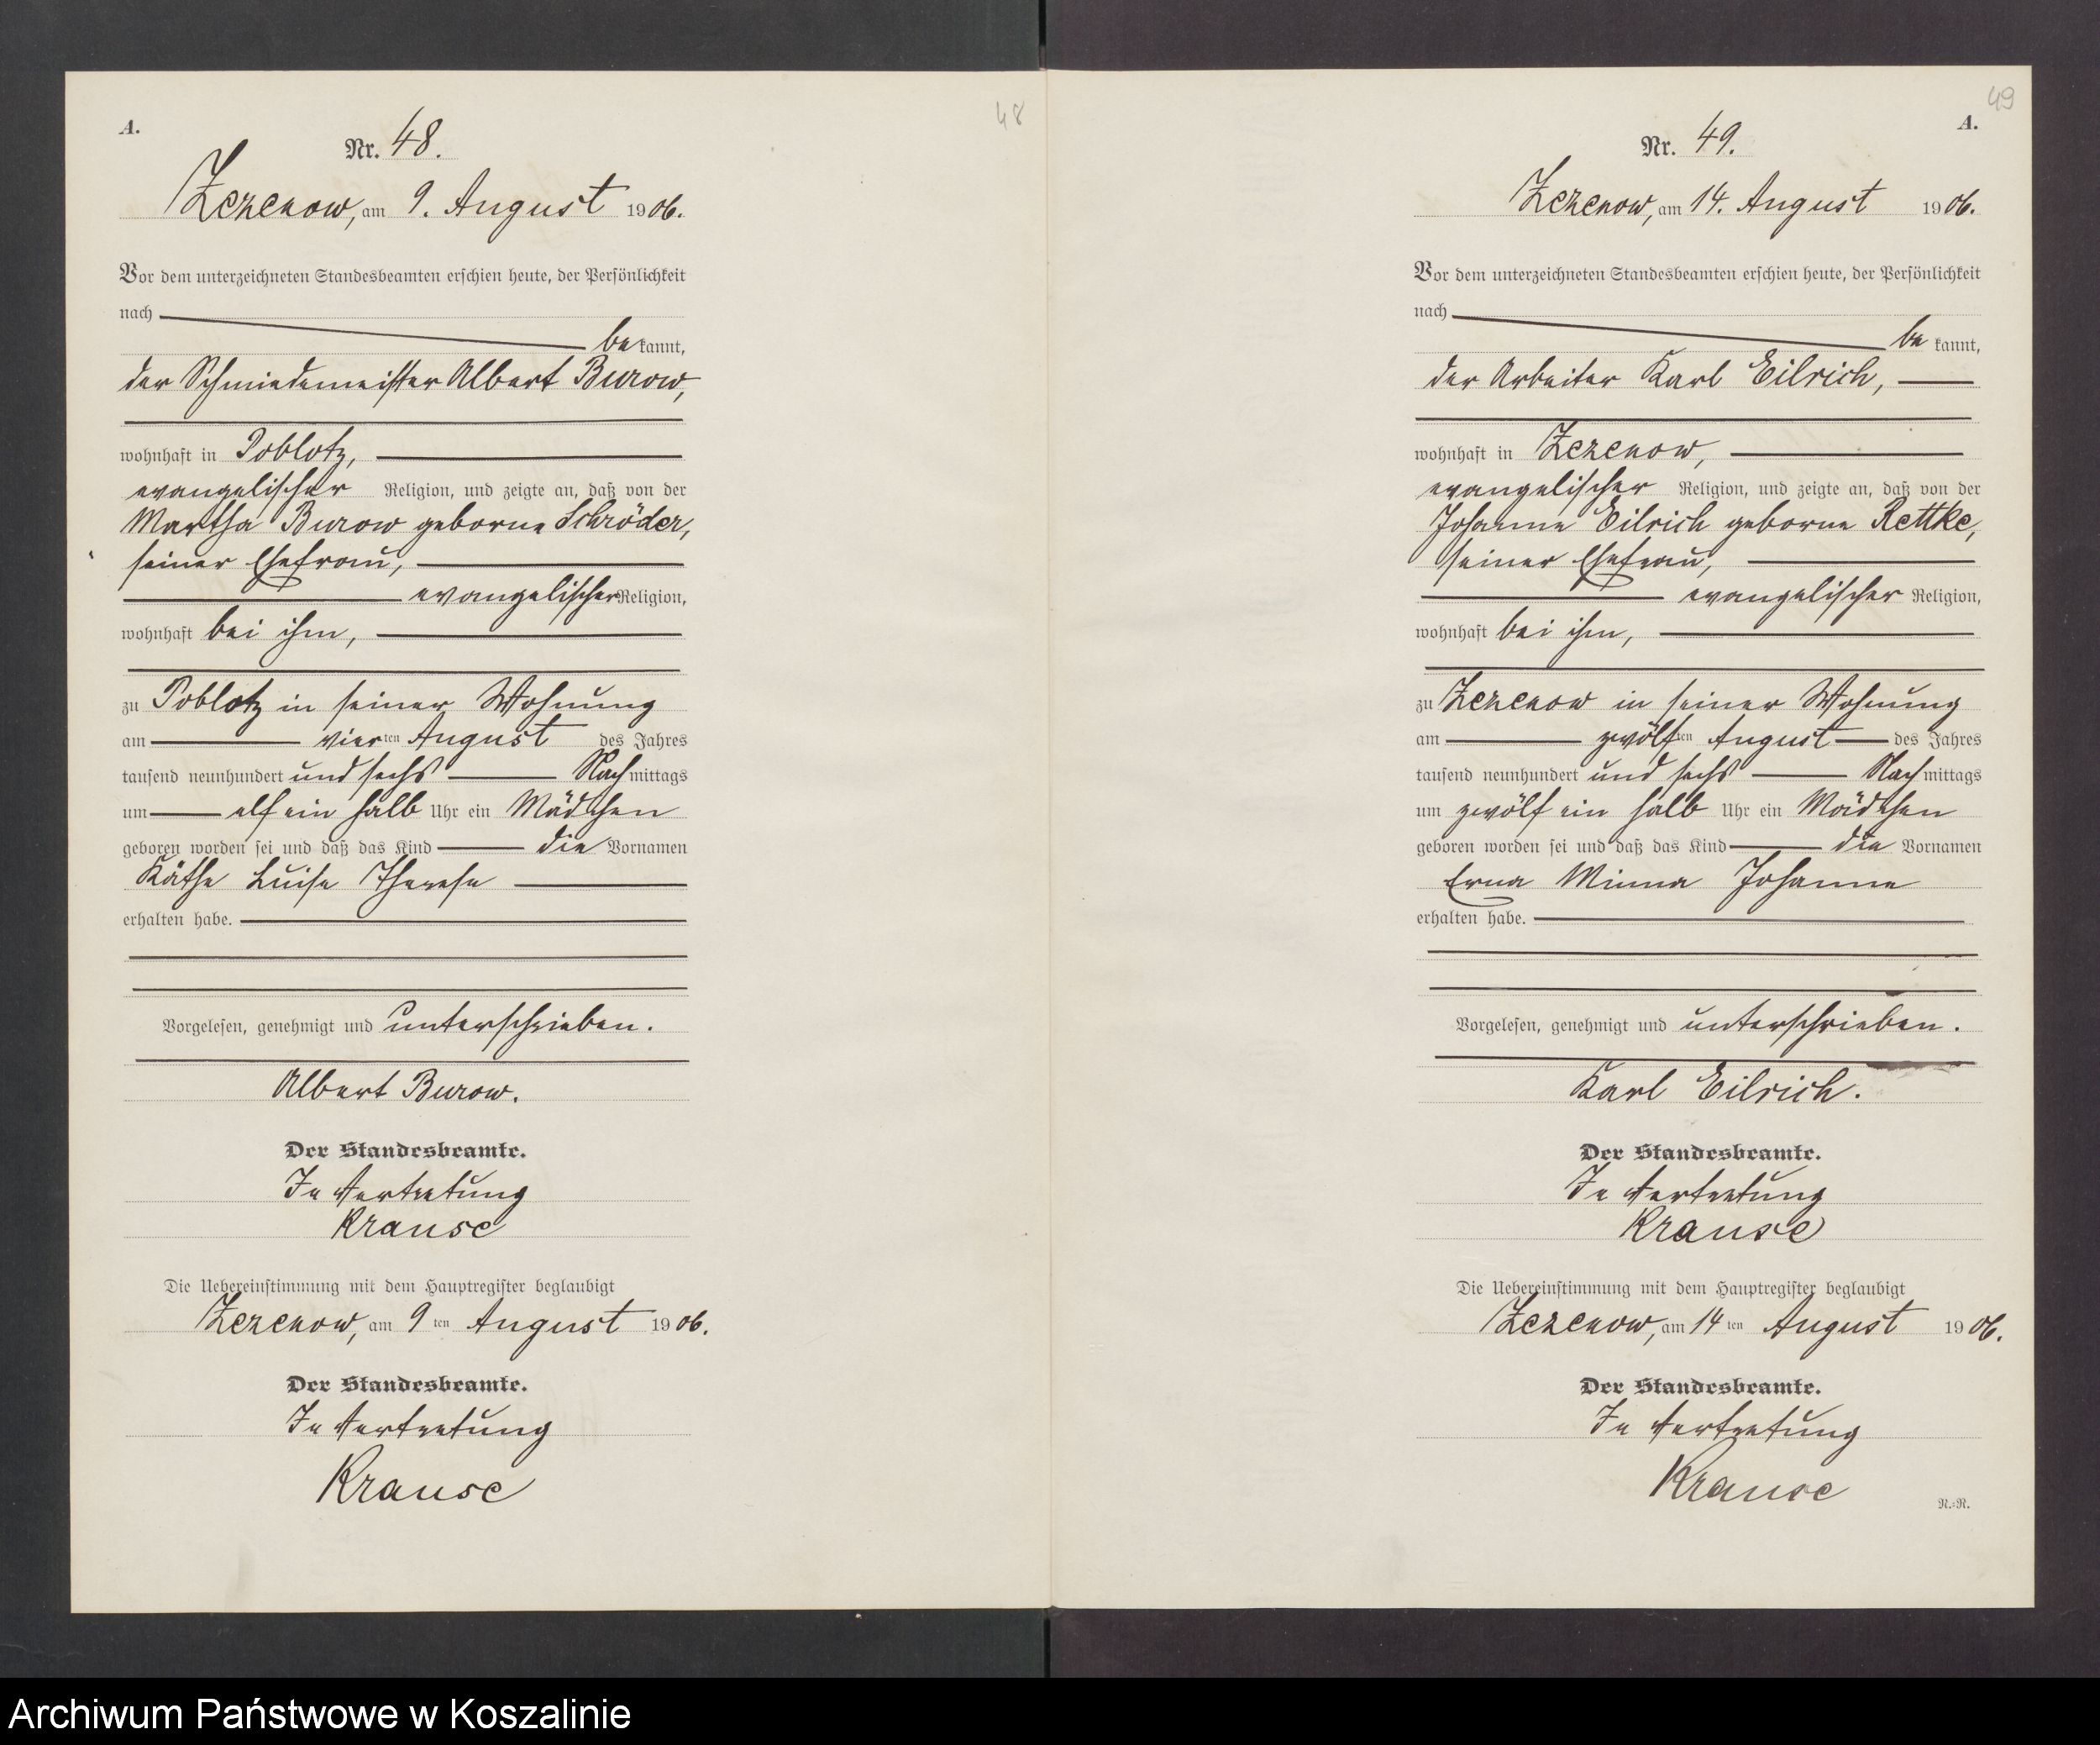 48
A.
Nr. 48.
Zezenow, am 9. August 1906.
Vor dem unterzeichneten Standesbeamten erschien heute, der Persönlichkeit
nach
be kannt,
der Schmiedemeister Albert Burow,
wohnhaft in Poblotz,
evangelischer Religion, und zeigte an, daß von der
Martha Burow geborne Schröder,
seiner Ehefrau,
evangelischer Religion,
wohnhaft bei ihm,
zu Poblotz in seiner Wohnung
am vierten August des Jahres
tausend neunhundert und sechs Nachmittags
um elf ein halb Uhr ein Mädchen
geboren worden sei und daß das Kind die Vornamen
Käthe Luise Therese
erhalten habe.
Vorgelesen, genehmigt und unterschrieben.
Albert Burow.
Der Standesbeamte.
In Vertretung
Krause
Die Uebereinstimmung mit dem Hauptregister beglaubigt
Zezenow, am 9ten August 1906.
Der Standesbeamte.
In Vertretung
Krause
49
A.
Nr. 49.
Zezenow, am 14. August 1906.
Vor dem unterzeichneten Standesbeamten erschien heute, der Persönlichkeit
nach
be kannt,
der Arbeiter Karl Eilrich,
wohnhaft in Zezenow,
evangelischer Religion, und zeigte an, daß von der
Johanne Eilrich geborne Rettke,
seiner Ehefrau,
evangelischer Religion,
wohnhaft bei ihm,
zu Zezenow in seiner Wohnung
am zwölften August des Jahres
tausend neunhundert und sechs Nachmittags
um zwölf ein halb Uhr ein Mädchen
geboren worden sei und daß das Kind die Vornamen
Erna Minna Johanne
erhalten habe.
Vorgelesen, genehmigt und unterschrieben.
Karl Eilrich.
Der Standesbeamte.
In Vertretung
Krause
Die Uebereinstimmung mit dem Hauptregister beglaubigt
Zezenow, am 14ten August 1906.
Der Standesbeamte.
In Vertretung
Krause
N.=R.
Archiwum Państwowe w Koszalinie